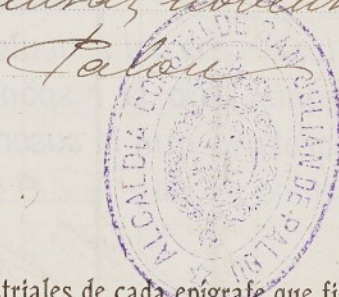 Palou
ALCALDIA CONSTNAL DE SAN JULIAN DE PALOU
triales de cada epígrafe que fi